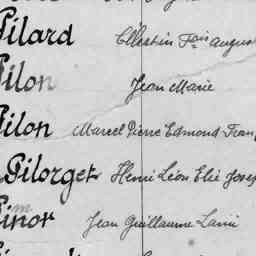 Pilard Célestin Fois August
Pilon Jean Marie
Pilon Marcel Pierre Edmond Fran
Pilorget Henri Léon Elie Josep
Jean Guillaume